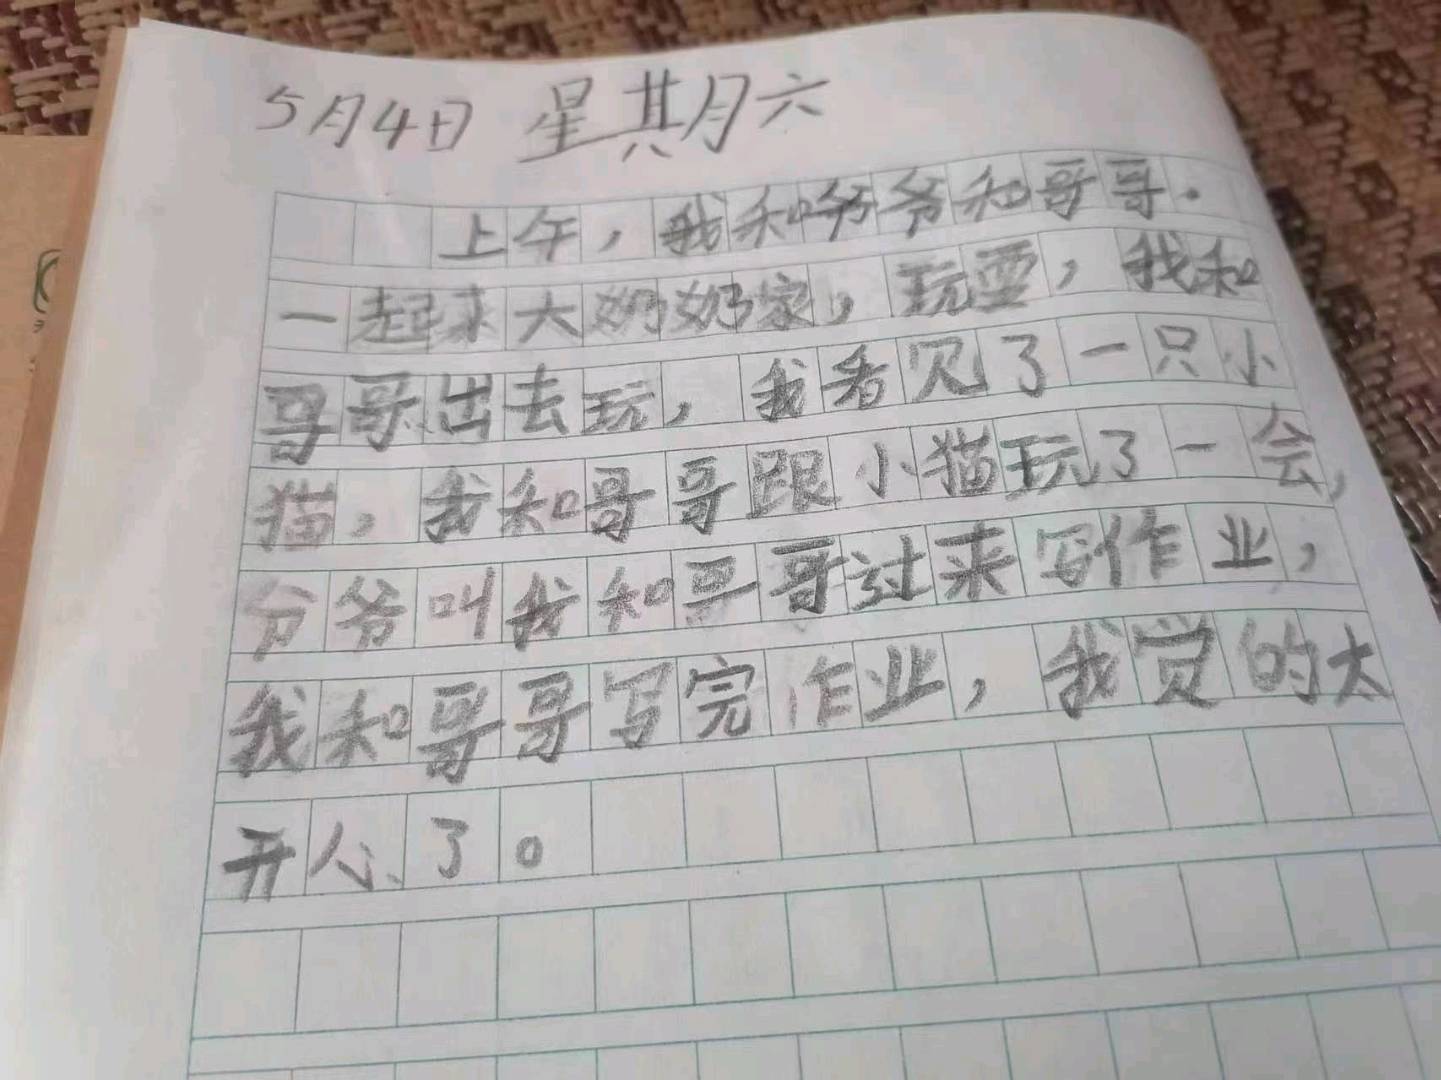 5月4日 星期六
上午，我和爷爷和哥哥.
一起来大奶奶家，玩耍，我和
哥哥出去玩，我看见了一只小
猫，我和哥哥跟小猫玩了一会，
爷爷叫我和哥哥过来写作业，
我和哥哥写完作业，我觉的太
开心了。